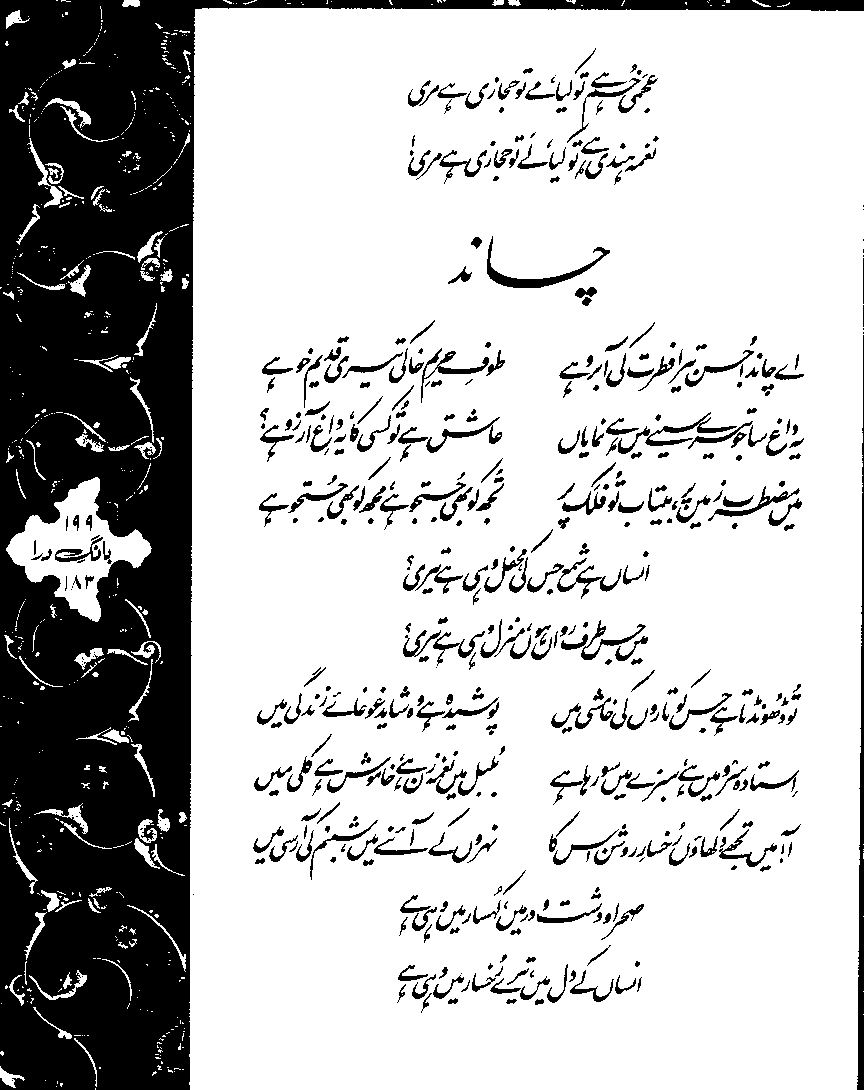 عجمی خُم ہے تو کیا، مے تو حجازی ہے مری
نغمہ ہندی ہے تو کیا، لَے تو حجازی ہے مری!
چاند
اے چاند! حُسن تیرا فطرت کی آبرو ہے طوفِ حریمِ خاکی تیری قدیم خو ہے
یہ داغ سا جو تیرے سینے میں ہے نمایاں عاشق ہے تُو کسی کا، یہ داغِ آرزو ہے؟
میں مضطرب زمیں پر، بیتاب تُو فلک پر تُجھ کو بھی جُستجو ہے، مجھ کو بھی جُستجو ہے
انساں ہے شمع جس کی، محفل وہی ہے تیری؟
میں جس طرف رواں ہوں، منزل وہی ہے تیری؟
تُو ڈھُونڈتا ہے جس کو تاروں کی خامشی میں پوشیدہ ہے وہ شاید غوغائے زندگی میں
اِستادہ سرْو میں ہے، سبزے میں سو رہا ہے بُلبل میں نغمہ زن ہے، خاموش ہے کلی میں
آ! میں تجھے دکھاؤں رُخسارِ روشن اس کا نہروں کے آئنے میں، شبنم کی آرسی میں
صحرا و دشت و در میں، کُہسار میں وہی ہے
انساں کے دل میں، تیرے رُخسار میں وہی ہے
۱۹۹
بانگِ درا
۱۸۳